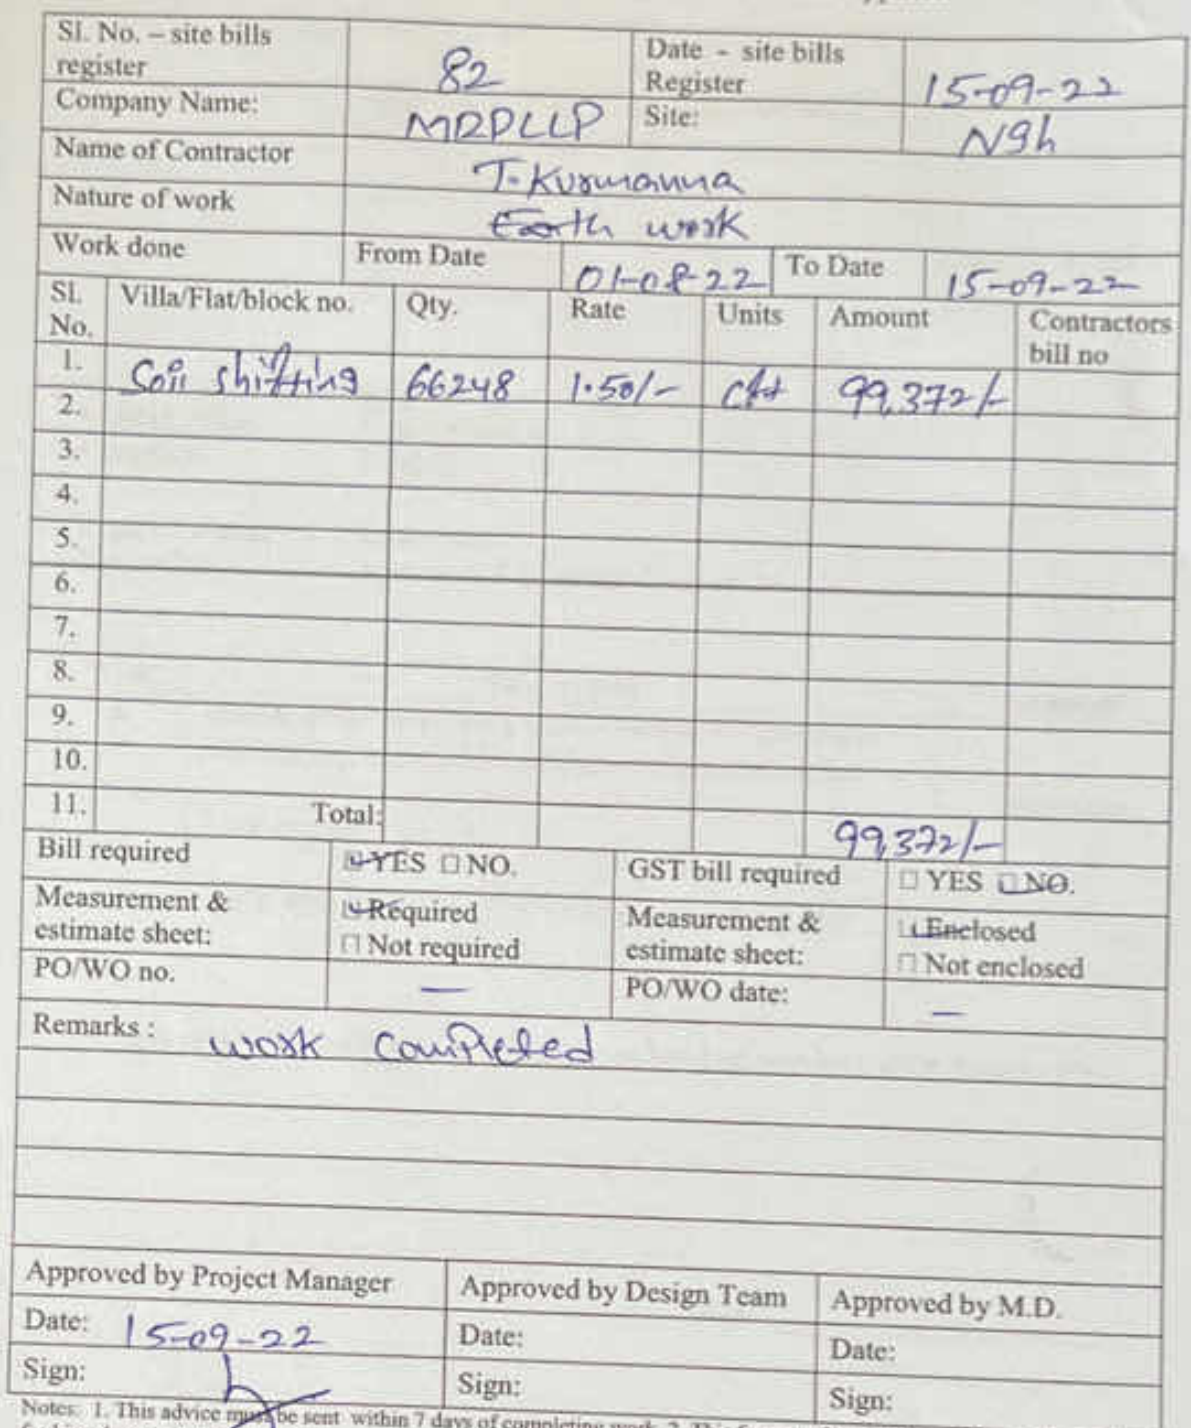 Sl. No. – site bills register 82 Date - site bills Register 15-09-22
Company Name: MRPLLP Site: Ngh
Name of Contractor T. Kurmanna
Nature of work Earth work
Work done From Date 01-08-22 To Date 15-09-22
Sl. No. Villa/Flat/block no. Qty. Rate Units Amount Contractors bill no
1. Soil shifting 66248 1.50/- cft 99,372/-
2.
3.
4.
5.
6.
7.
8.
9.
10.
11. Total: 99,372/-
Bill required ☑ YES ☐ NO. GST bill required ☐ YES ☑ NO.
Measurement & estimate sheet: ☑ Required ☐ Not required Measurement & estimate sheet: ☑ Enclosed ☐ Not enclosed
PO/WO no. — PO/WO date: —
Remarks : work completed
Approved by Project Manager Approved by Design Team Approved by M.D.
Date: 15-09-22 Date: Date:
Sign: Sign: Sign:
Notes: 1. This advice must be sent within 7 days of completing work. 2. This